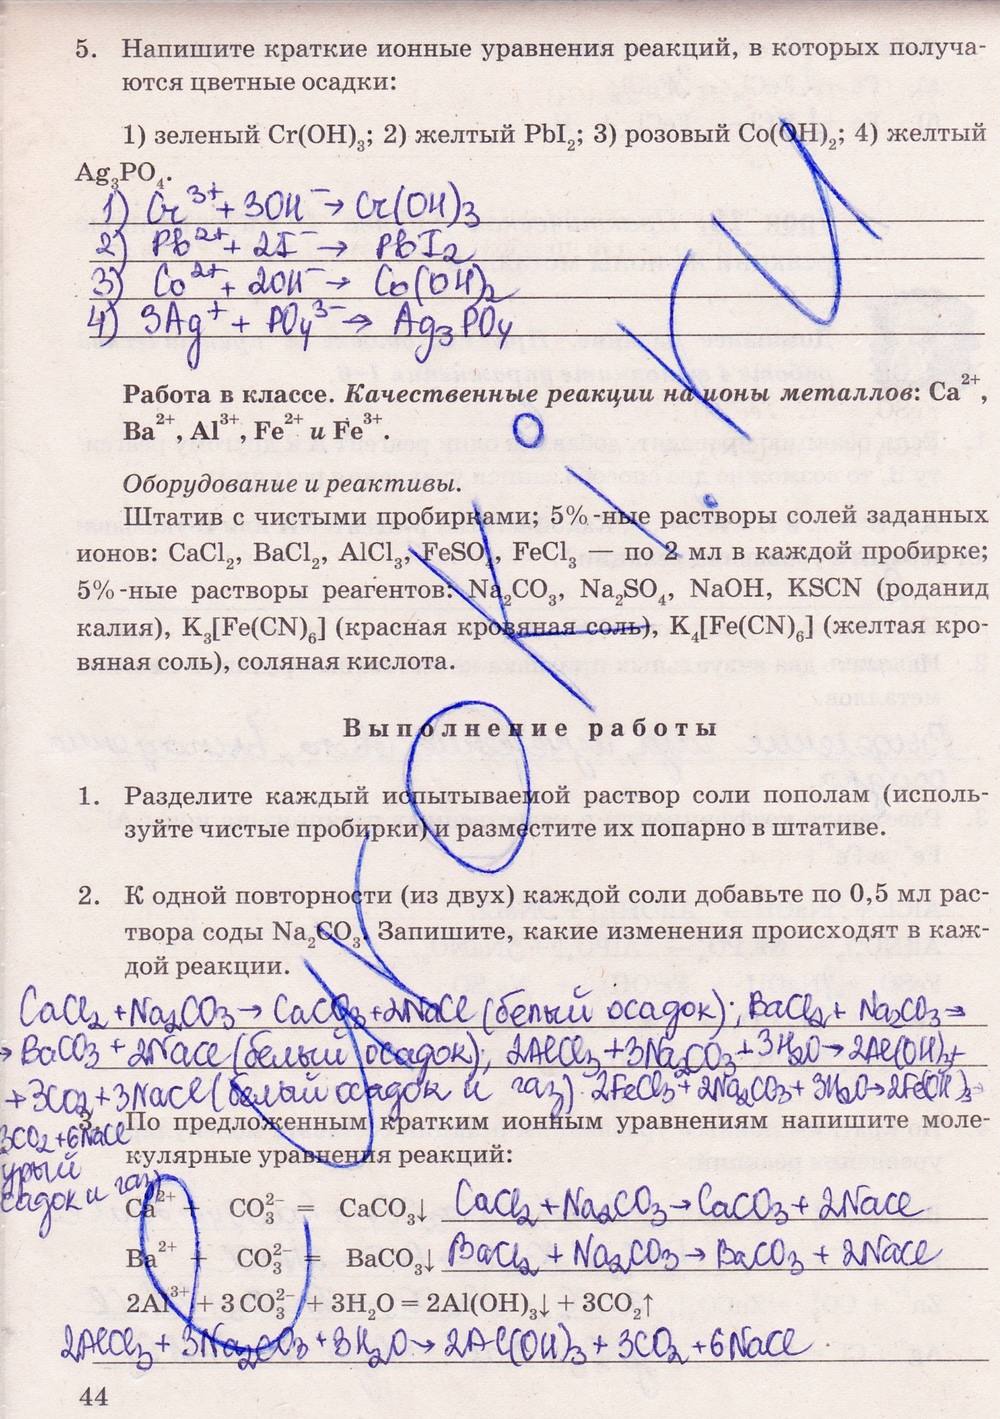 5. Напишите краткие ионные уравнения реакций, в которых получа-
ются цветные осадки:
1) зеленый Cr(OH)₃; 2) желтый PbI₂; 3) розовый Co(OH)₂; 4) желтый
Ag₃PO₄.
1) Cr³⁺ + 3OH⁻ → Cr(OH)₃
2) Pb²⁺ + 2I⁻ → PbI₂
3) Co²⁺ + 2OH⁻ → Co(OH)₂
4) 3Ag⁺ + PO₄³⁻ → Ag₃PO₄
Работа в классе. Качественные реакции на ионы металлов: Ca²⁺,
Ba²⁺, Al³⁺, Fe²⁺ и Fe³⁺.
Оборудование и реактивы.
Штатив с чистыми пробирками; 5%-ные растворы солей заданных
ионов: CaCl₂, BaCl₂, AlCl₃, FeSO₄, FeCl₃ — по 2 мл в каждой пробирке;
5%-ные растворы реагентов: Na₂CO₃, Na₂SO₄, NaOH, KSCN (роданид
калия), K₃[Fe(CN)₆] (красная кровяная соль), K₄[Fe(CN)₆] (желтая кро-
вяная соль), соляная кислота.
Выполнение работы
1. Разделите каждый испытываемой раствор соли пополам (исполь-
зуйте чистые пробирки) и разместите их попарно в штативе.
2. К одной повторности (из двух) каждой соли добавьте по 0,5 мл рас-
твора соды Na₂CO₃. Запишите, какие изменения происходят в каж-
дой реакции.
CaCl₂ + Na₂CO₃ → CaCO₃ + 2NaCl (белый осадок); BaCl₂ + Na₂CO₃ →
→ BaCO₃ + 2NaCl (белый осадок); 2AlCl₃ + 3Na₂CO₃ + 3H₂O → 2Al(OH)₃ +
+ 3CO₂ + 3NaCl (белый осадок и газ). 2FeCl₃ + 2Na₂CO₃ + 3H₂O → 2Fe(OH)₃
3CO₂ + 6NaCl
бурый
осадок и газ)
3. По предложенным кратким ионным уравнениям напишите моле-
кулярные уравнения реакций:
Ca²⁺ + CO₃²⁻ = CaCO₃↓ CaCl₂ + Na₂CO₃ → CaCO₃ + 2NaCl
Ba²⁺ + CO₃²⁻ = BaCO₃↓ BaCl₂ + Na₂CO₃ → BaCO₃ + 2NaCl
2Al³⁺ + 3CO₃²⁻ + 3H₂O = 2Al(OH)₃↓ + 3CO₂↑
2AlCl₃ + 3Na₂CO₃ + 3H₂O → 2Al(OH)₃ + 3CO₂ + 6NaCl
44